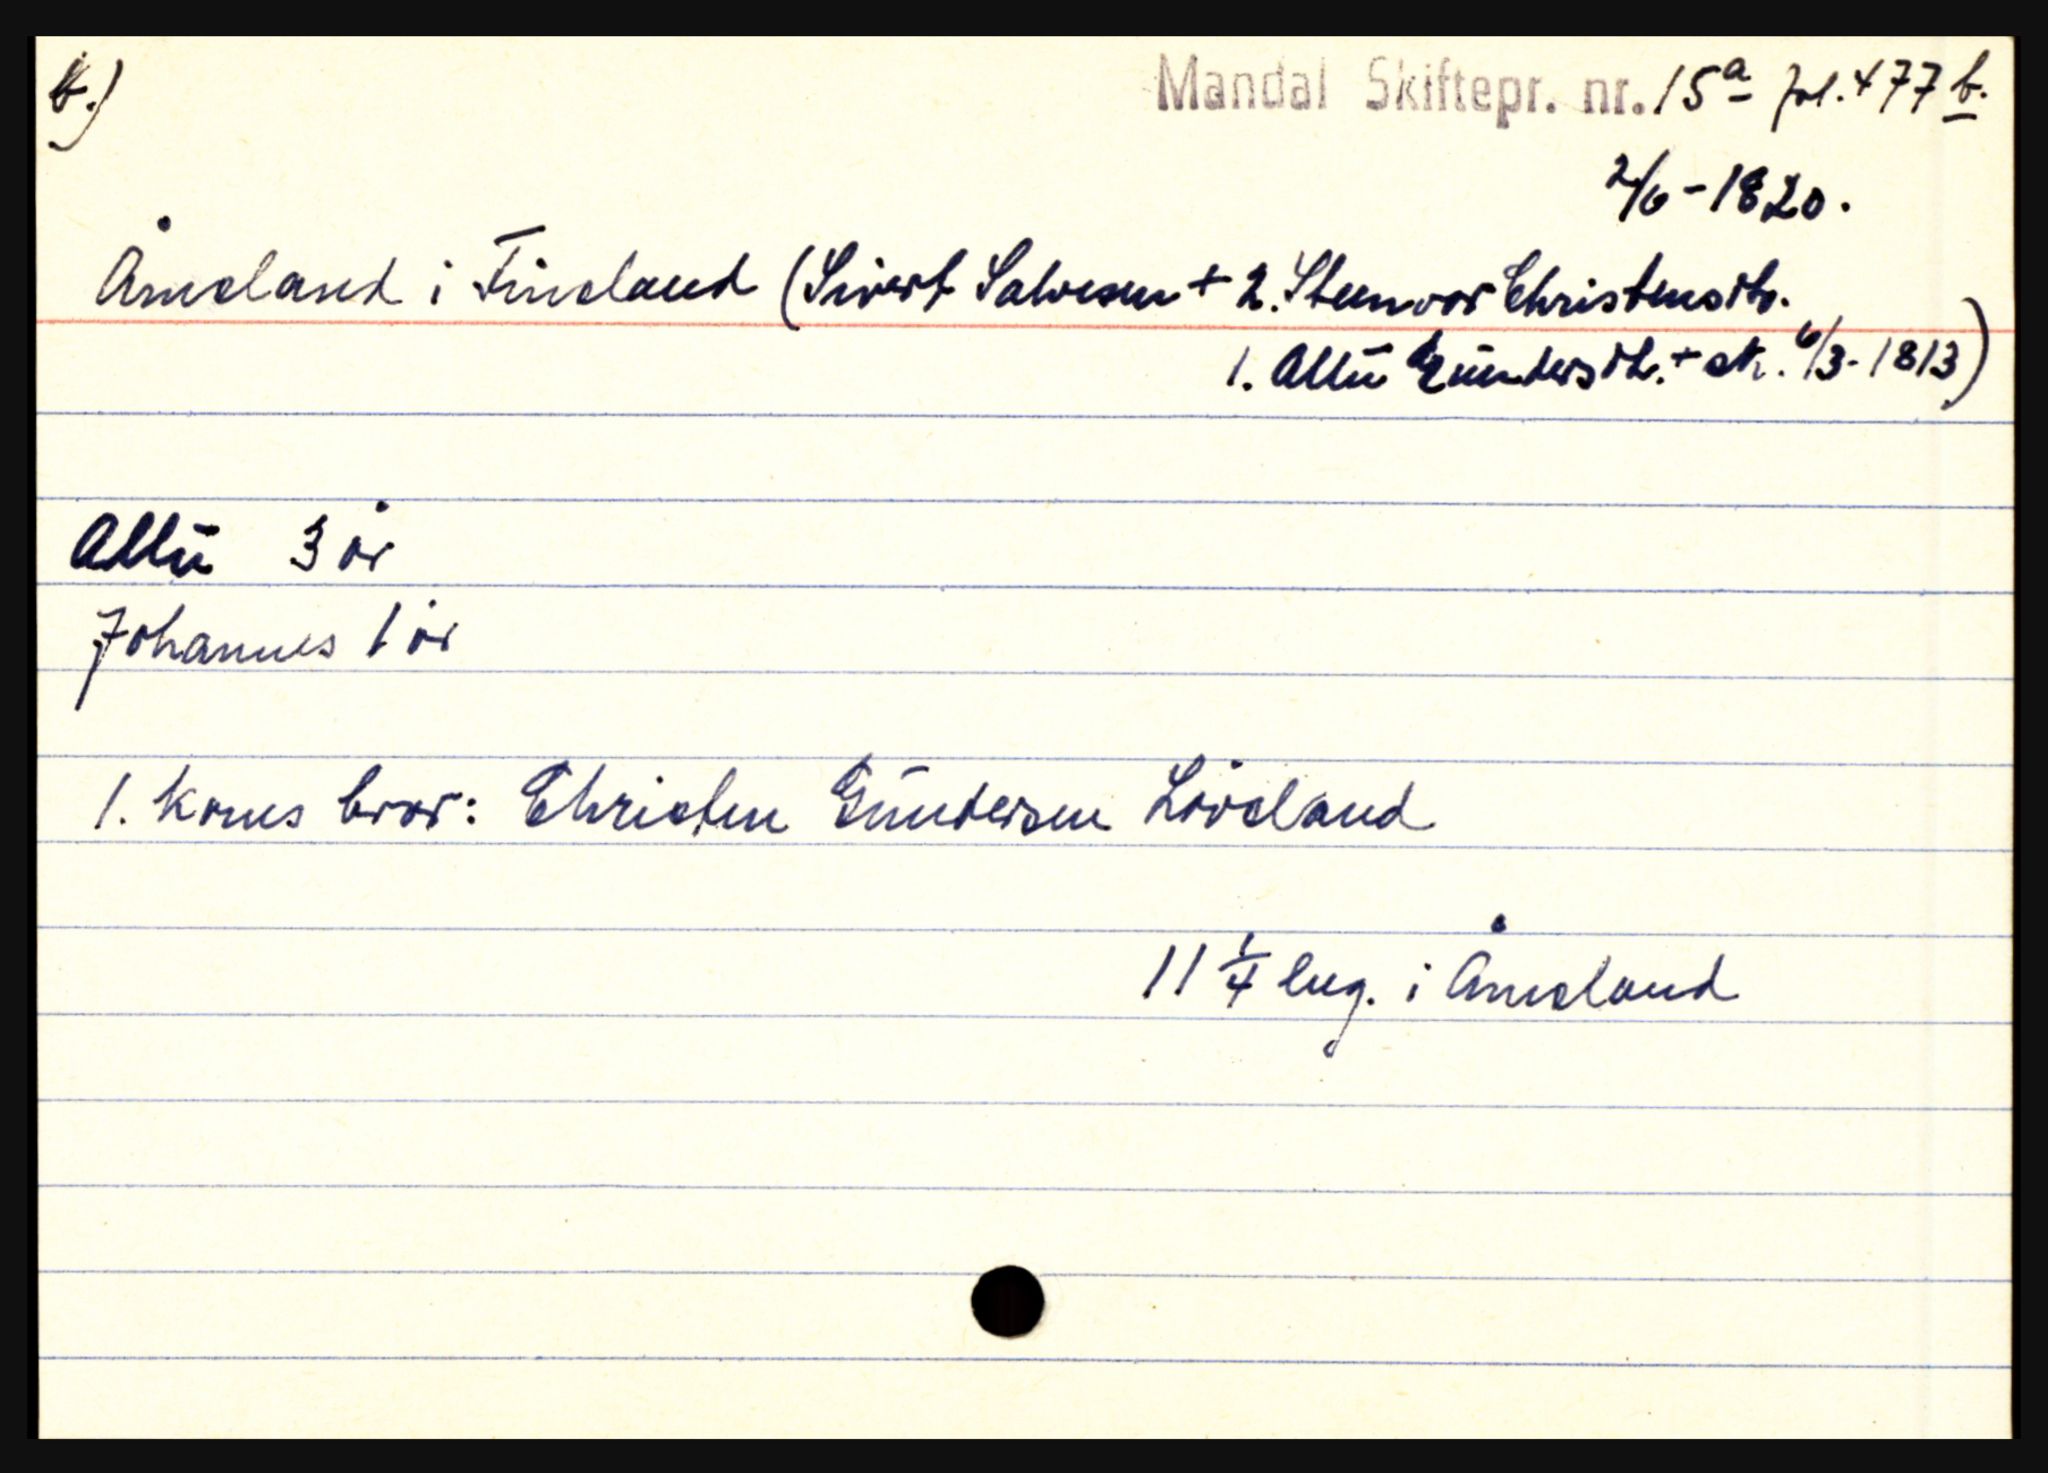 b.)
Mandal Skiftepr. nr. 15a fol. 477 b.
2/6 - 1820.
Åmeland i Fineland (Sivert Salvesen + 2. Steenvor Christensdtr.
1. Allū Gūndersdtr. + sk. 6/3 - 1813)
Allū 3 år
Johannes 1 år
1. kones bror: Christen Gūndersen Løveland
11 1/4 eng. i Åmeland